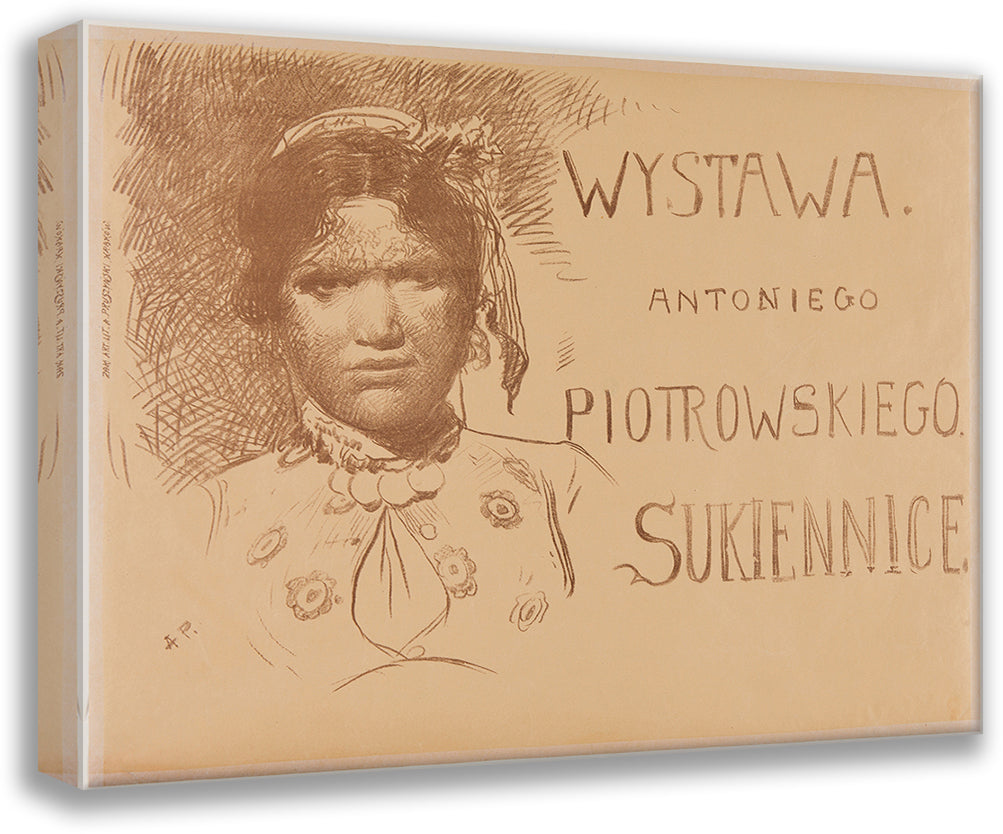 WYSTAWA.
ANTONIEGO
PIOTROWSKIEGO.
SUKIENNICE.
A P.
ZAKŁ. ART. LIT. A. PRUSZYŃSKI. KRAKÓW.